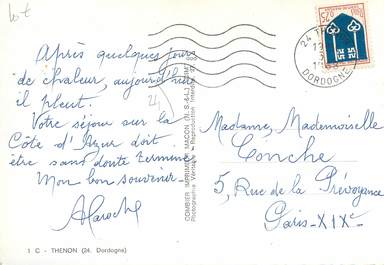 Après quelques jours
de chaleur, aujourd'hui
il pleut.
Votre séjour sur la
Côte d'Azur doit
être sans doute terminé
Mon bon souvenir.
ALaroche
1 C - THENON (24. Dordogne)
COMBIER IMPRIMEUR MACON (S.-&-L.)
Photographie Véritable - Reproduction Interdite
24
DORDOGNE
Madame, Mademoiselle
Conche
5, Rue de la Prévoyance
Paris-XIXe